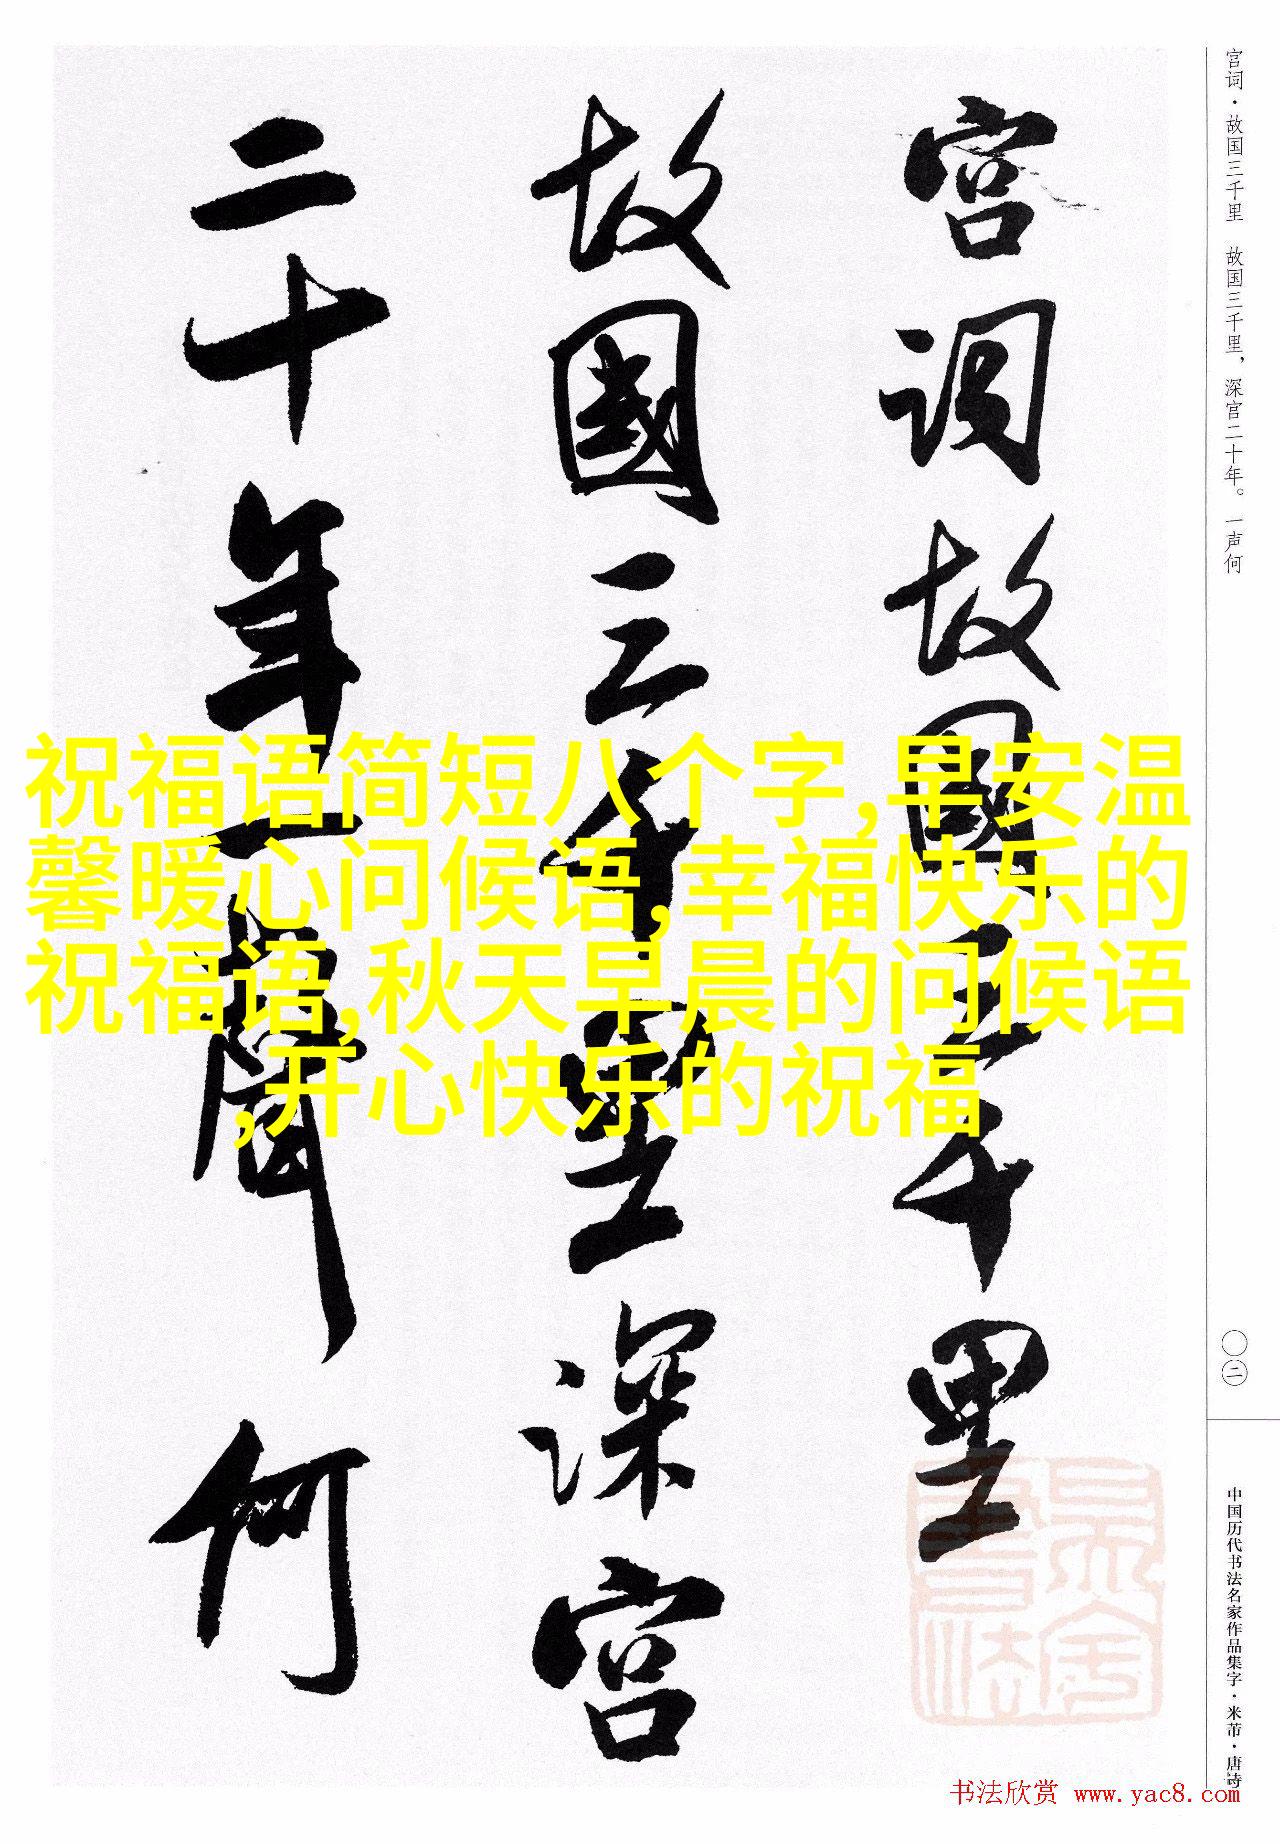 宫词·故国三千里　故国三千里，深宫二十年。一声何
宫词故國三千里
故國三千里深宫
二十年一聲何
祝福语简短八个字,早安温
馨暖心问候语,幸福快乐的
祝福语,秋天早晨的问候语
,开心快乐的祝福
〇二
中国历代书法名家作品集字·米芾·唐诗
书法欣赏 www.yac8.com